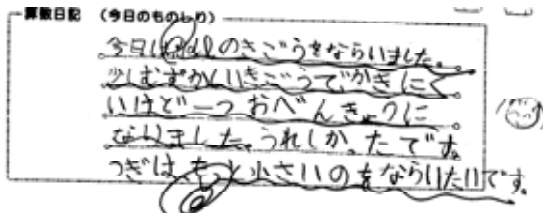 算数日記 （今日のものしり）
今日はmLのきごうをならいました。
少しむずかしいきごうでかきにく
いけど一つおべんきょうに
なりました。うれしかったです。
つぎは、もっと小さいのをならいたいです。